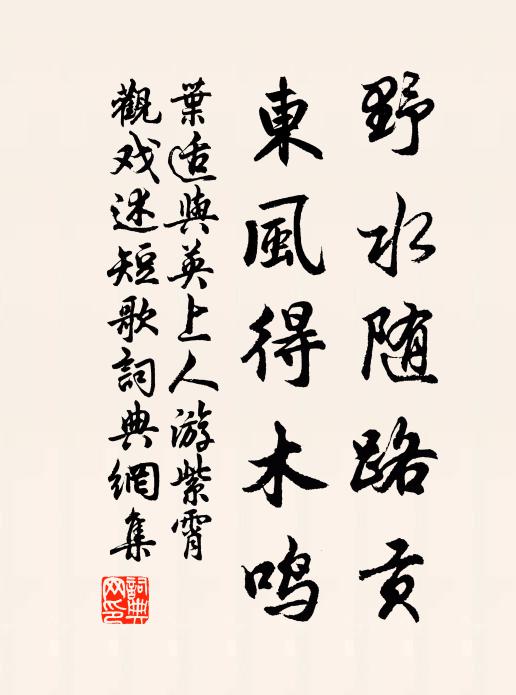 野水随路贡
東風得木鸣
葉适與英上人游紫霄
觀戏述短歌詞典網集
詞典
网印